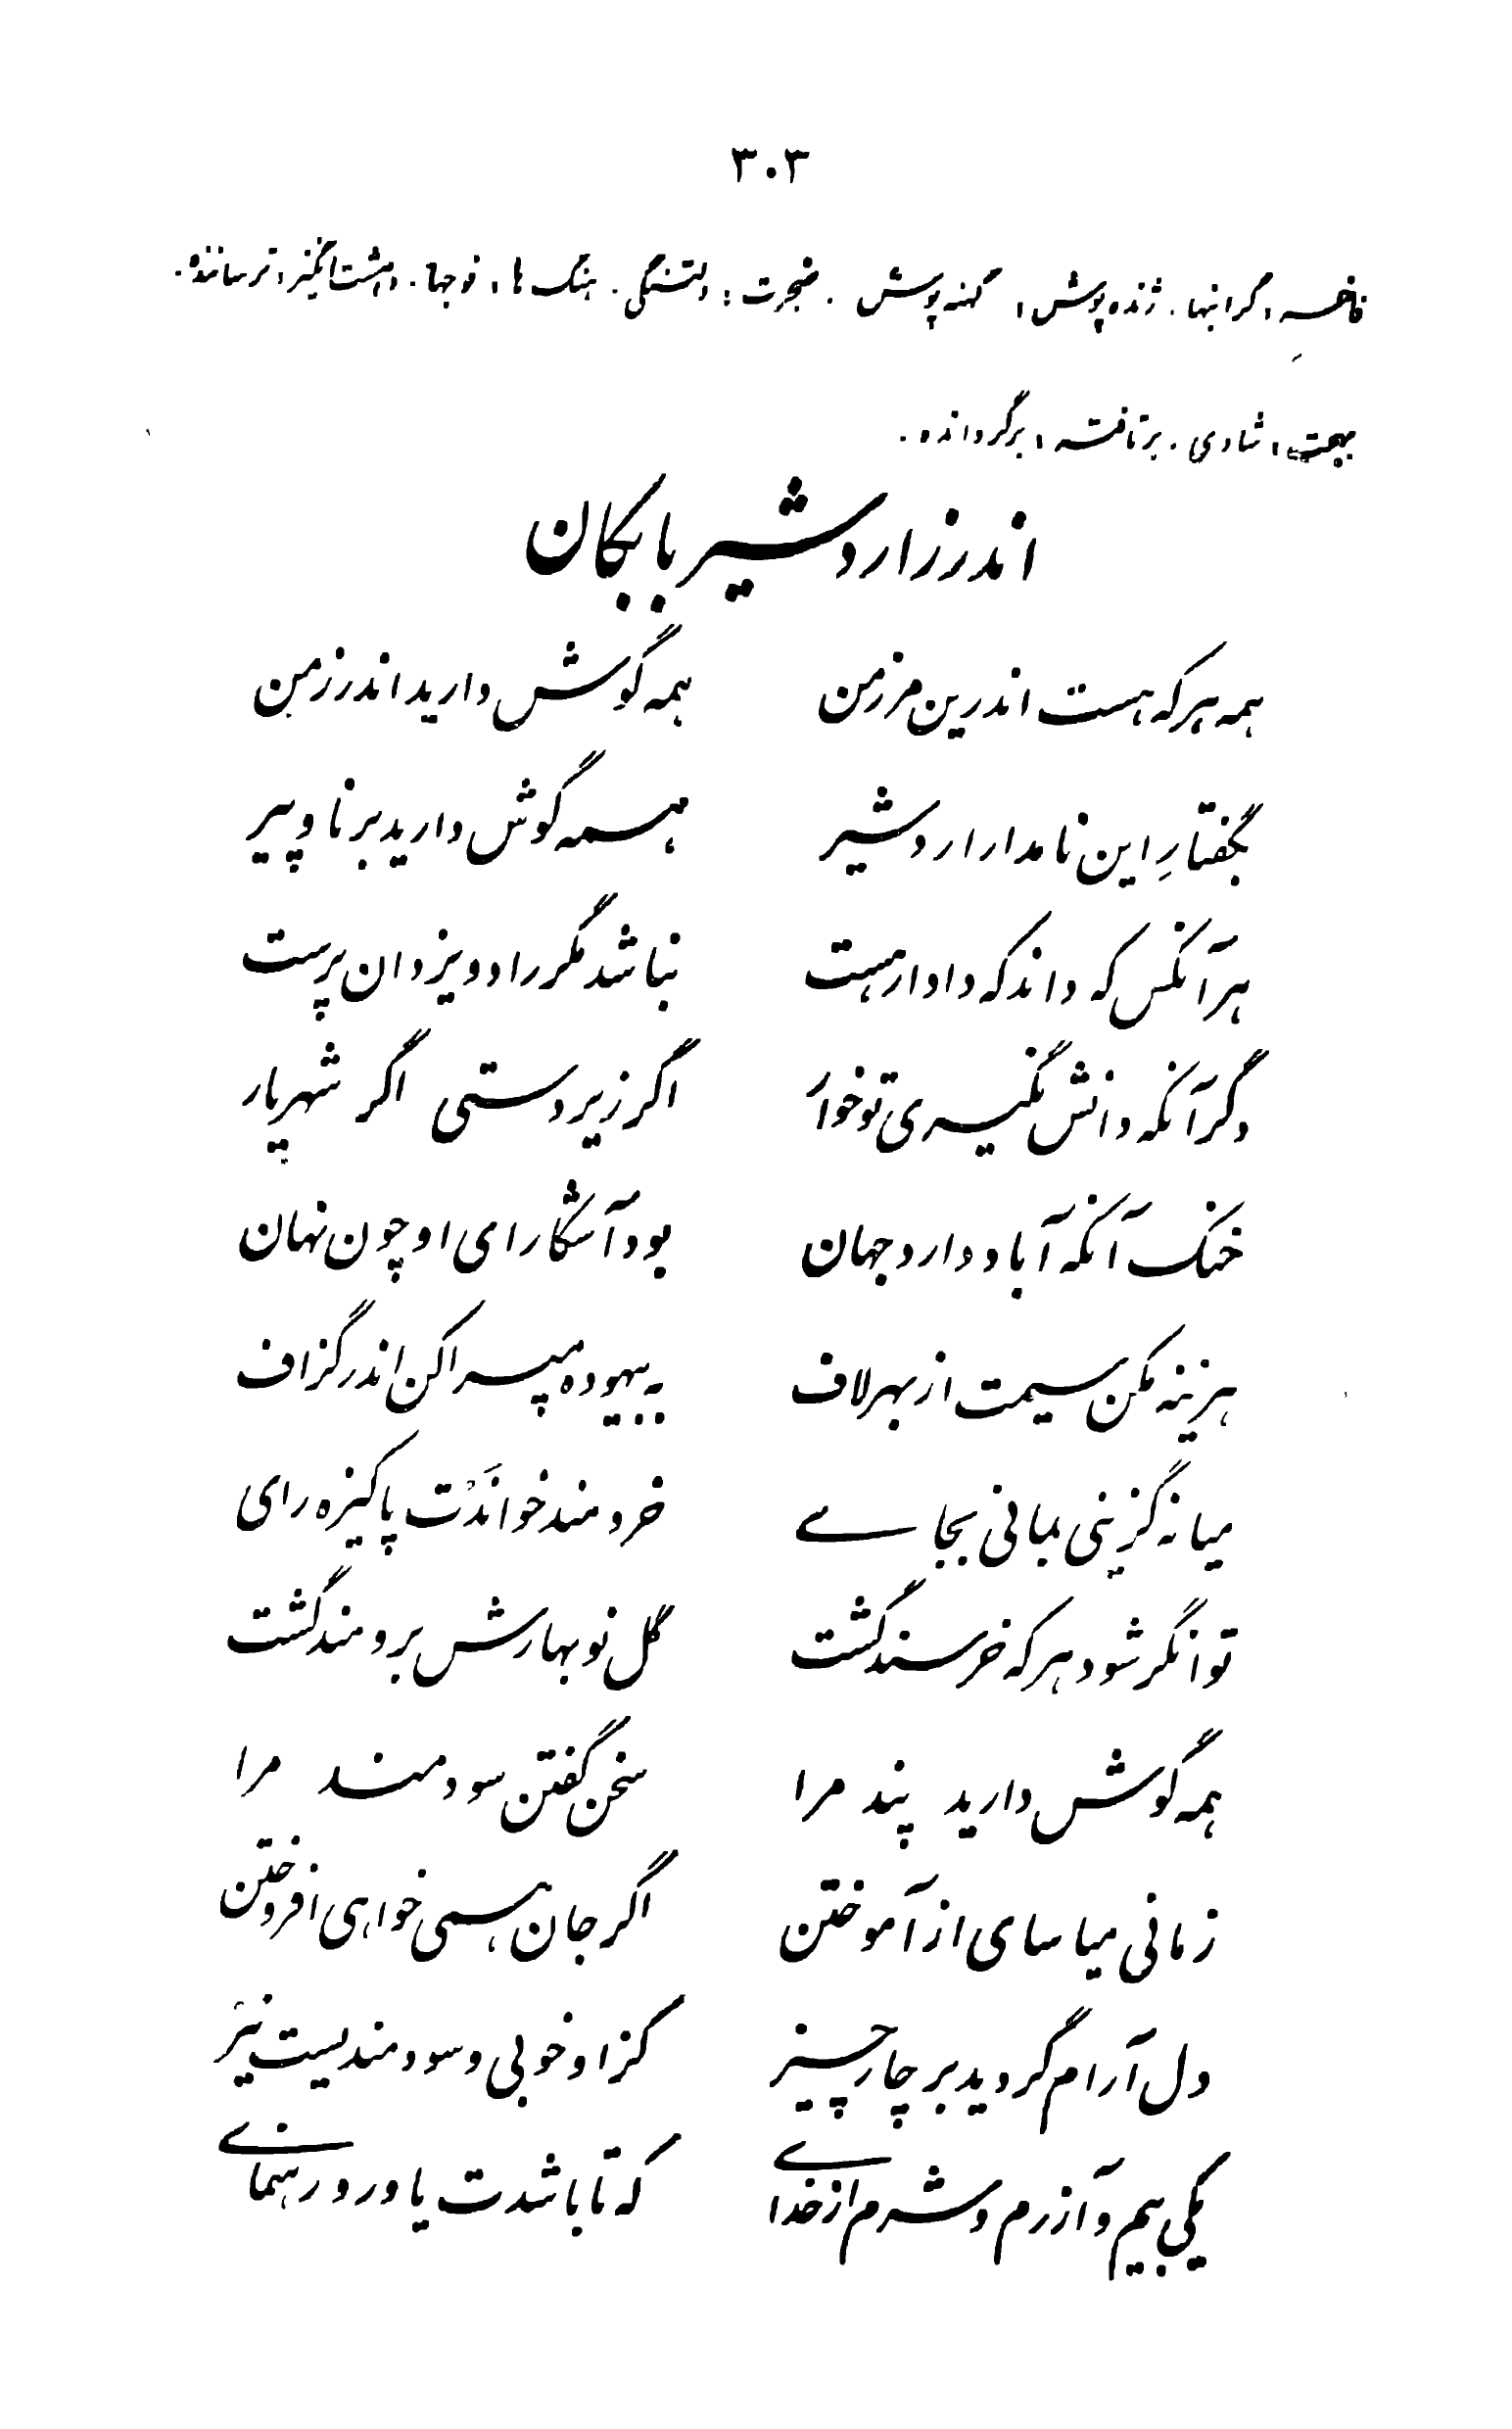 ۳۰۳
فاخره، گرانبها. ژنده پوش، کهنه پوش. ضجرت: دلتنگی. هنگ ها، فوجها. دهشت انگیز، ترساننده.
بهجت، شادی. برتافته، برگردانده.
اندرز اردشیر بابکان
همه هرکه هست اندرین مرز من همه گوش دارید اندرز من
بگفتارِ این نامدار اردشیر همه گوش دارید برنا و پیر
هر آنکس که داند که دادار هست نباشد مگر راد و یزدان پرست
دگر آنکه دانش نگیری تو خوار اگر زیردستی اگر شهریار
خنک آنکه آباد دارد جهان بود آشکارای او چون نهان
هزینه مکن سیمت از بهر لاف به بیهوده مپراکن اندر گزاف
میانه گزینی بمانی بجای خردمند خوانَدْت پاکیزه رای
توانگر شود هرکه خرسند گشت گل نوبهارش برومند گشت
همه گوش دارید پند مرا سخن گفتن سودمند مرا
زمانی میاسای از آموختن اگر جان همی خواهی افروختن
دل آرام گردید بر چار چیز کزو خوبی و سودمندیست نیز
یکی بیم و آزرم و شرم از خدای که تا باشدت یاور و رهنمای